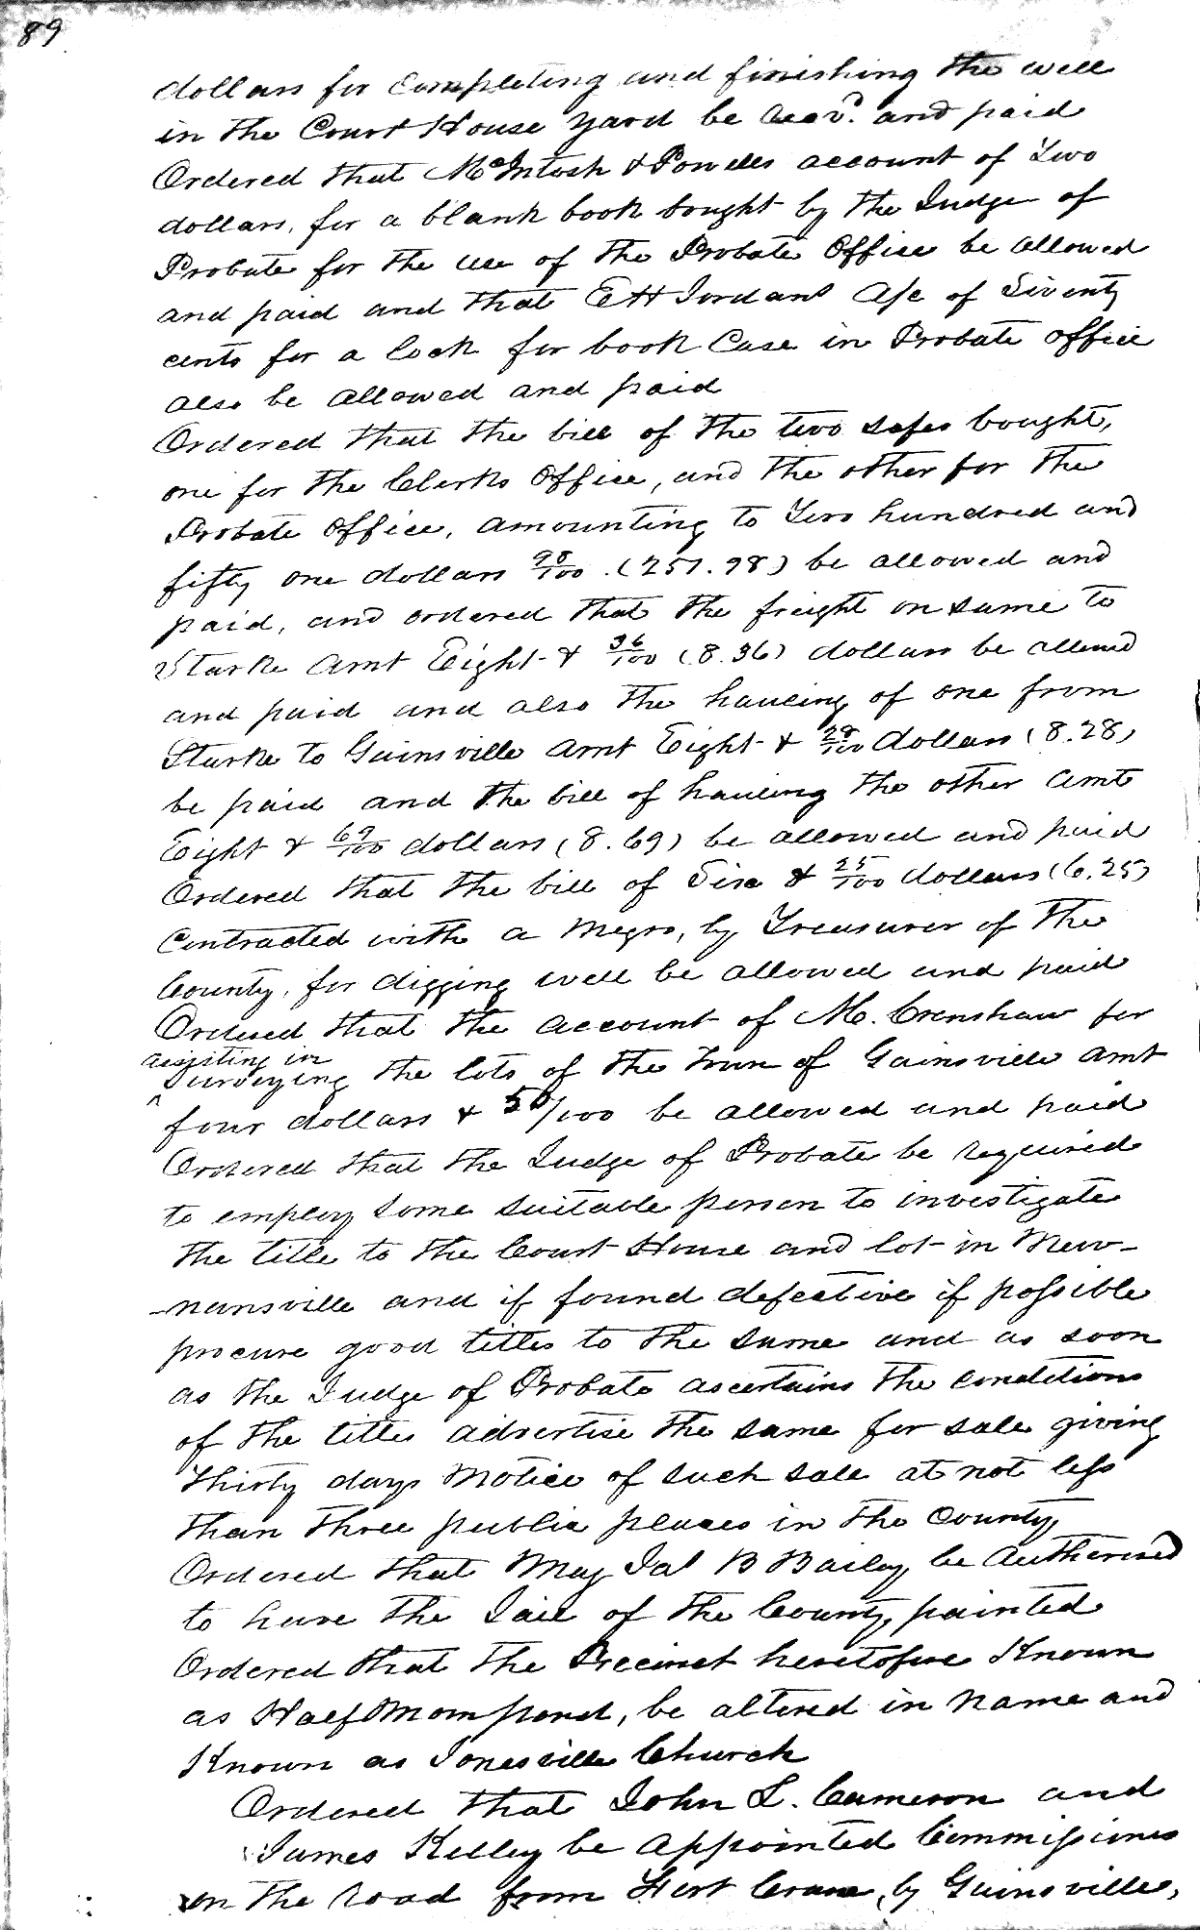 89
dollars for completing and finishing the well
in the Court House yard be recvd. and paid
Ordered that McIntosh & Powells account of Two
dollars, for a blank book bought by the Judge of
Probate for the use of the Probate Office be allowed
and paid and that E H Jordans A/c of Seventy
cents for a lock for book Case in Probate office
also be allowed and paid
Ordered that the bill of the two safes bought,
one for the Clerks Office, and the other for the
Probate Office, amounting to Two hundred and
fifty one dollars 98/100 (251.98) be allowed and
paid, and ordered that the freight on same to
Starke Amt Eight & 36/100 (8.36) dollars be allowed
and paid and also the hauling of one from
Starke to Gainsville Amt Eight & 28/100 dollars (8.28)
be paid and the bill of hauling the other Amt
Eight & 69/100 dollars (8.69) be allowed and paid
Ordered that the bill of Six & 25/100 dollars (6.25)
Contracted with a Negro, by Treasurer of the
County, for digging well be allowed and paid
Ordered that the account of M. Crenshaw for
assisting in
^ surveying the lots of the Town of Gainsville Amt
four dollars & 50/100 be allowed and paid
Ordered that the Judge of Probate be required
to employ some suitable person to investigate
the title to the Court House and lot in New-
-nansville and if found defective if possible
procure good titles to the same and as soon
as the Judge of Probate ascertains the conditions
of the titles advertise the same for sale giving
thirty days Notice of such sale at not less
than three public places in the County,
Ordered that May Jas B Bailey be Authorised
to have the Jail of the County, painted
Ordered that the Precinct heretofore Known
as Half Moon pond, be altered in name and
Known as Jonesville Church
Ordered that John L. Cameron and
James Kelley be appointed Commissioners
on the road from Fort Crane, by Gainsville,